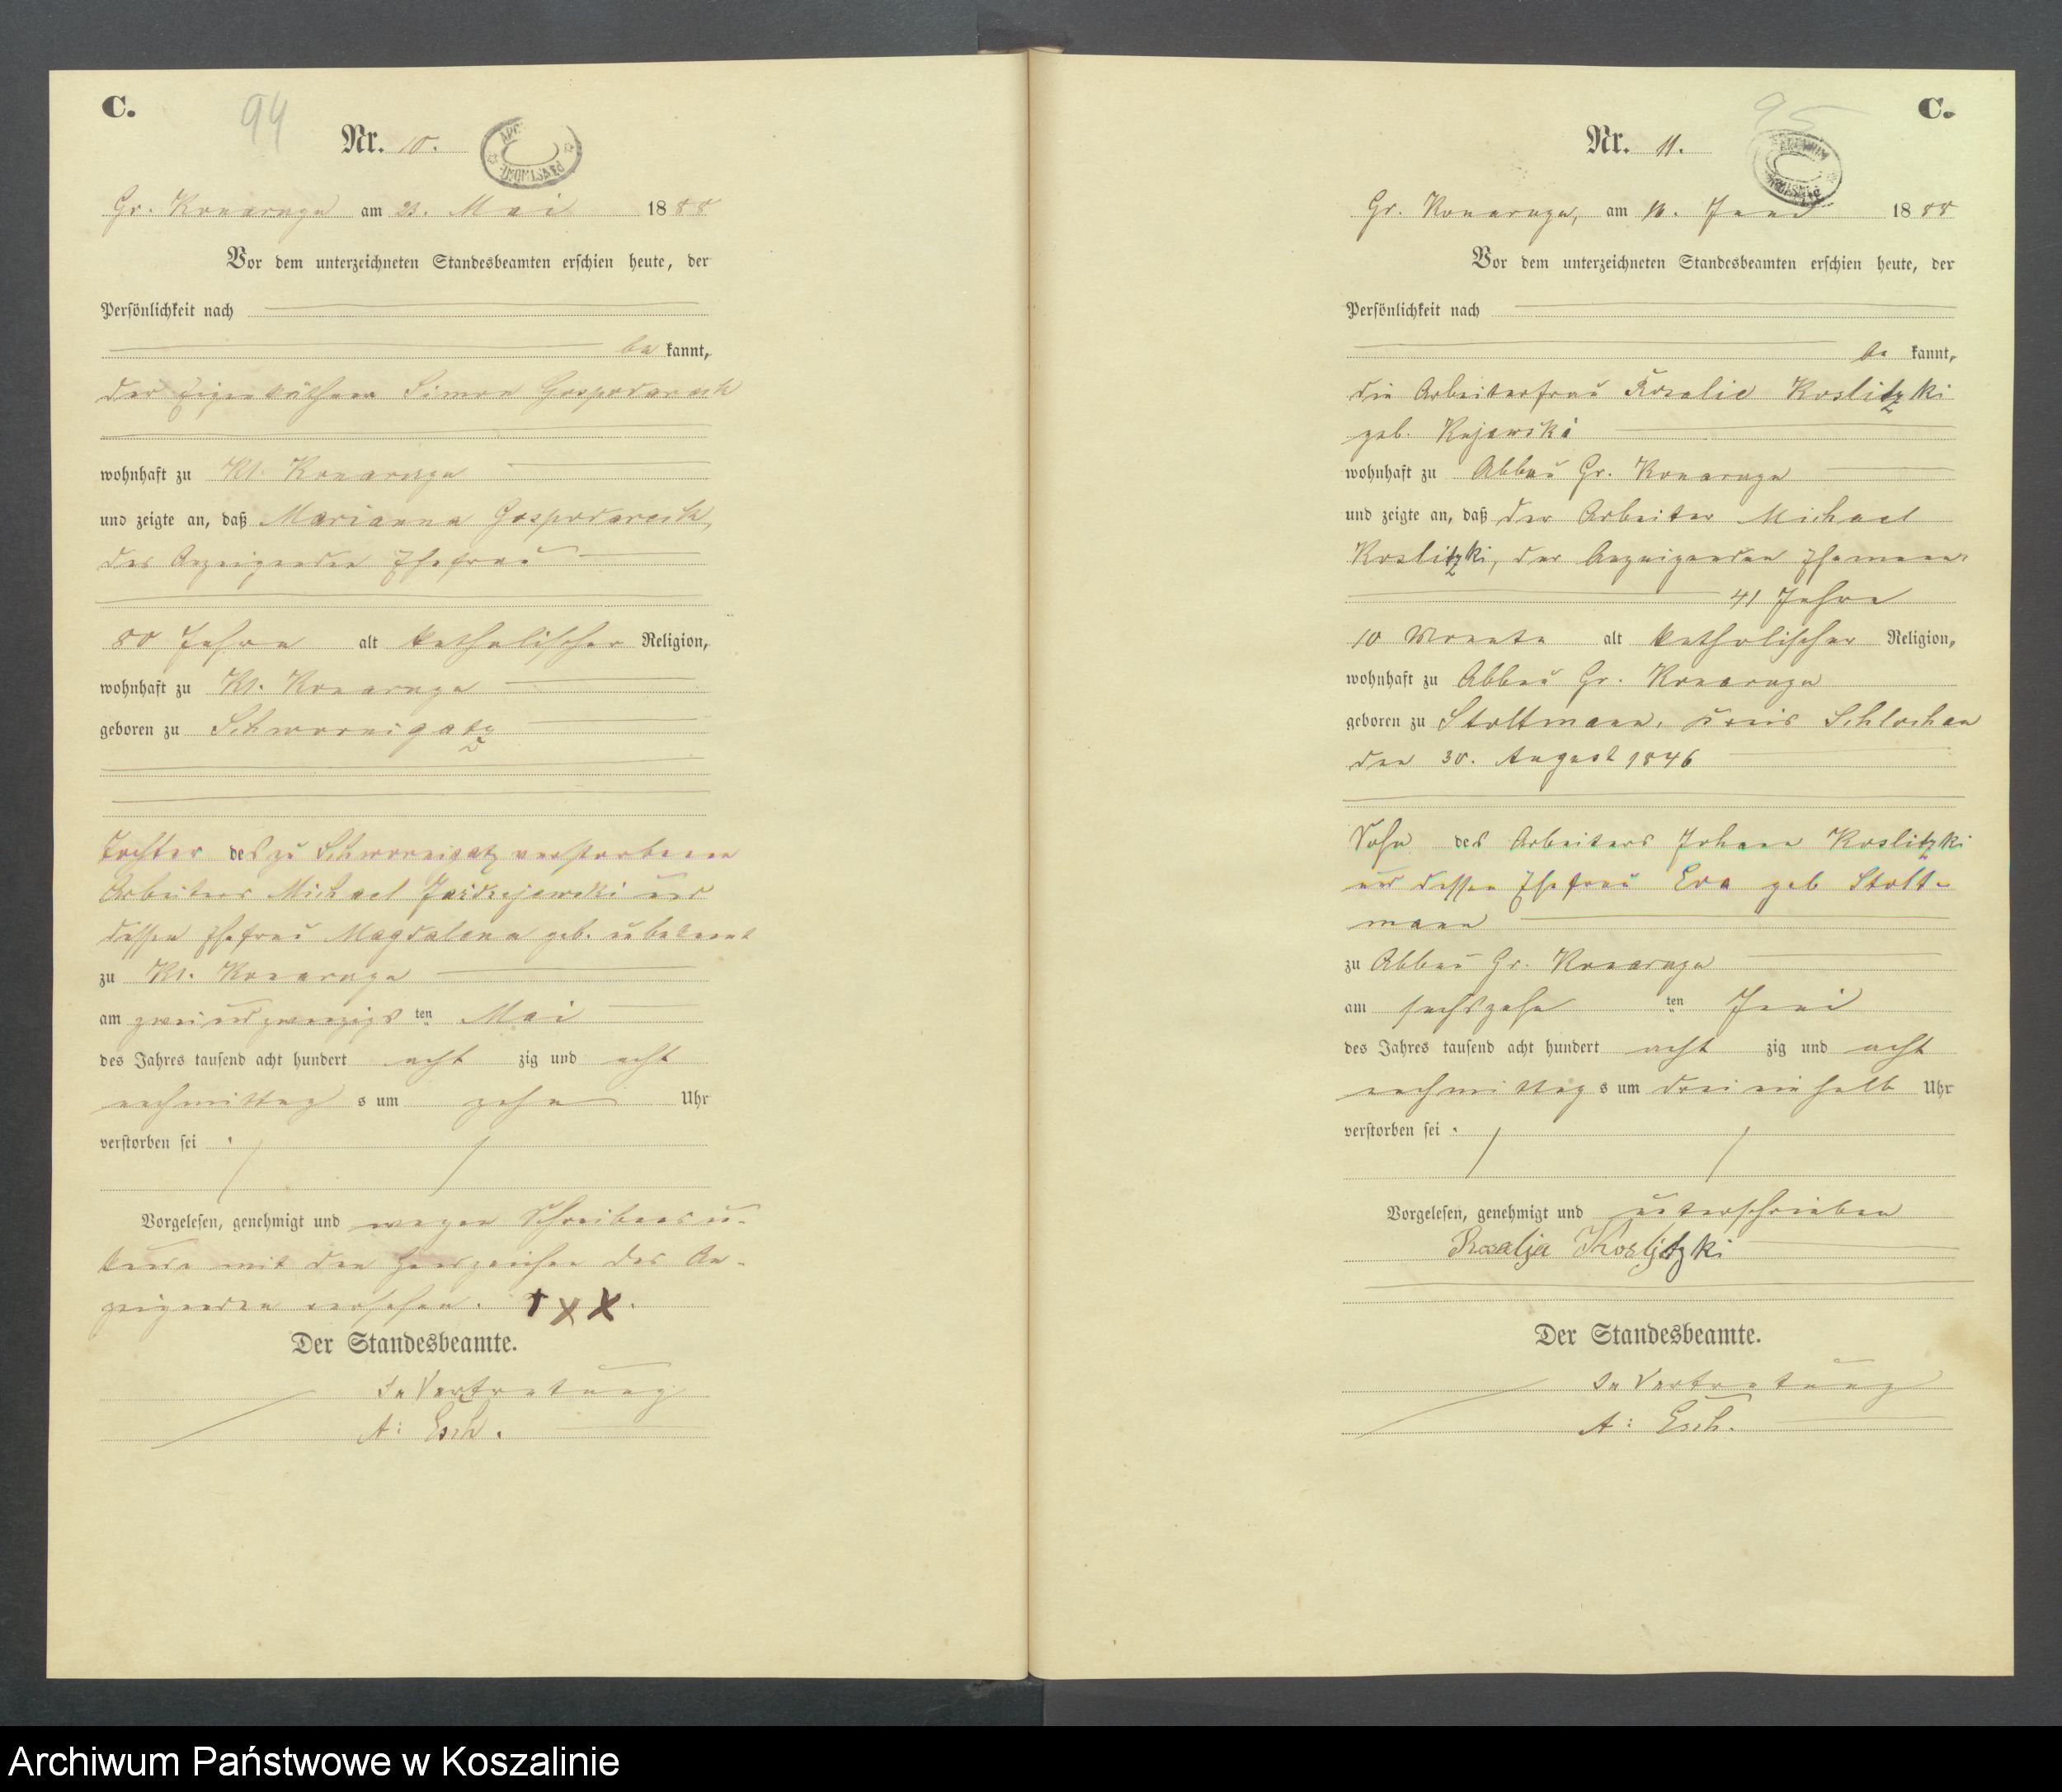 C.
94
Nr. 10.
Gr. Konarczyn am 23. Mai 1888
Vor dem unterzeichneten Standesbeamten erschien heute, der
Persönlichkeit nach
be kannt,
der Eigenkäthner Simon Gospodarek
wohnhaft zu Kl. Konarczyn
und zeigte an, daß Marianna Gospodarek,
des Anzeigenden Ehefrau
80 Jahre alt katholischer Religion,
wohnhaft zu Kl. Konarczyn
geboren zu Schwornigatz
Tochter des zu Schwornigatz verstorbenen
Arbeiters Michael und
dessen Ehefrau Magdalena geb. unbekannt
zu Kl. Konarczyn
am zweiundzwanzigs ten Mai
des Jahres tausend acht hundert acht zig und acht
nachmittag s um zehn Uhr
verstorben sei.
Vorgelesen, genehmigt und wegen Schreibensun-
kunde mit den Handzeichen des An-
zeigenden versehen. +xx.
Der Standesbeamte.
In Vertretung
A: Esch.
C.
95
Nr. 11.
Gr. Konarczyn, am 16. Juni 1888
Vor dem unterzeichneten Standesbeamten erschien heute, der
Persönlichkeit nach
be kannt,
die Arbeiterfrau Rosalie Koslitzki
geb. Kujawski
wohnhaft zu Abbau Gr. Konarczyn
und zeigte an, daß der Arbeiter Michael
Koslitzki, der Anzeigenden Ehemann
41 Jahre
10 Monate alt katholischer Religion,
wohnhaft zu Abbau Gr. Konarczyn
geboren zu Stoltmann, Kreis Schlochau
den 30. August 1846
Sohn des Arbeiters Johann Koslitzki
und dessen Ehefrau Eva geb Stolt-
mann
zu Abbau Gr. Konarczyn
am sechszehn ten Juni
des Jahres tausend acht hundert acht zig und acht
nachmittag s um drei ein halb Uhr
verstorben sei.
Vorgelesen, genehmigt und unterschrieben
Rosalja Kosljtzki
Der Standesbeamte.
In Vertretung
A: Esch.
Archiwum Państwowe w Koszalinie